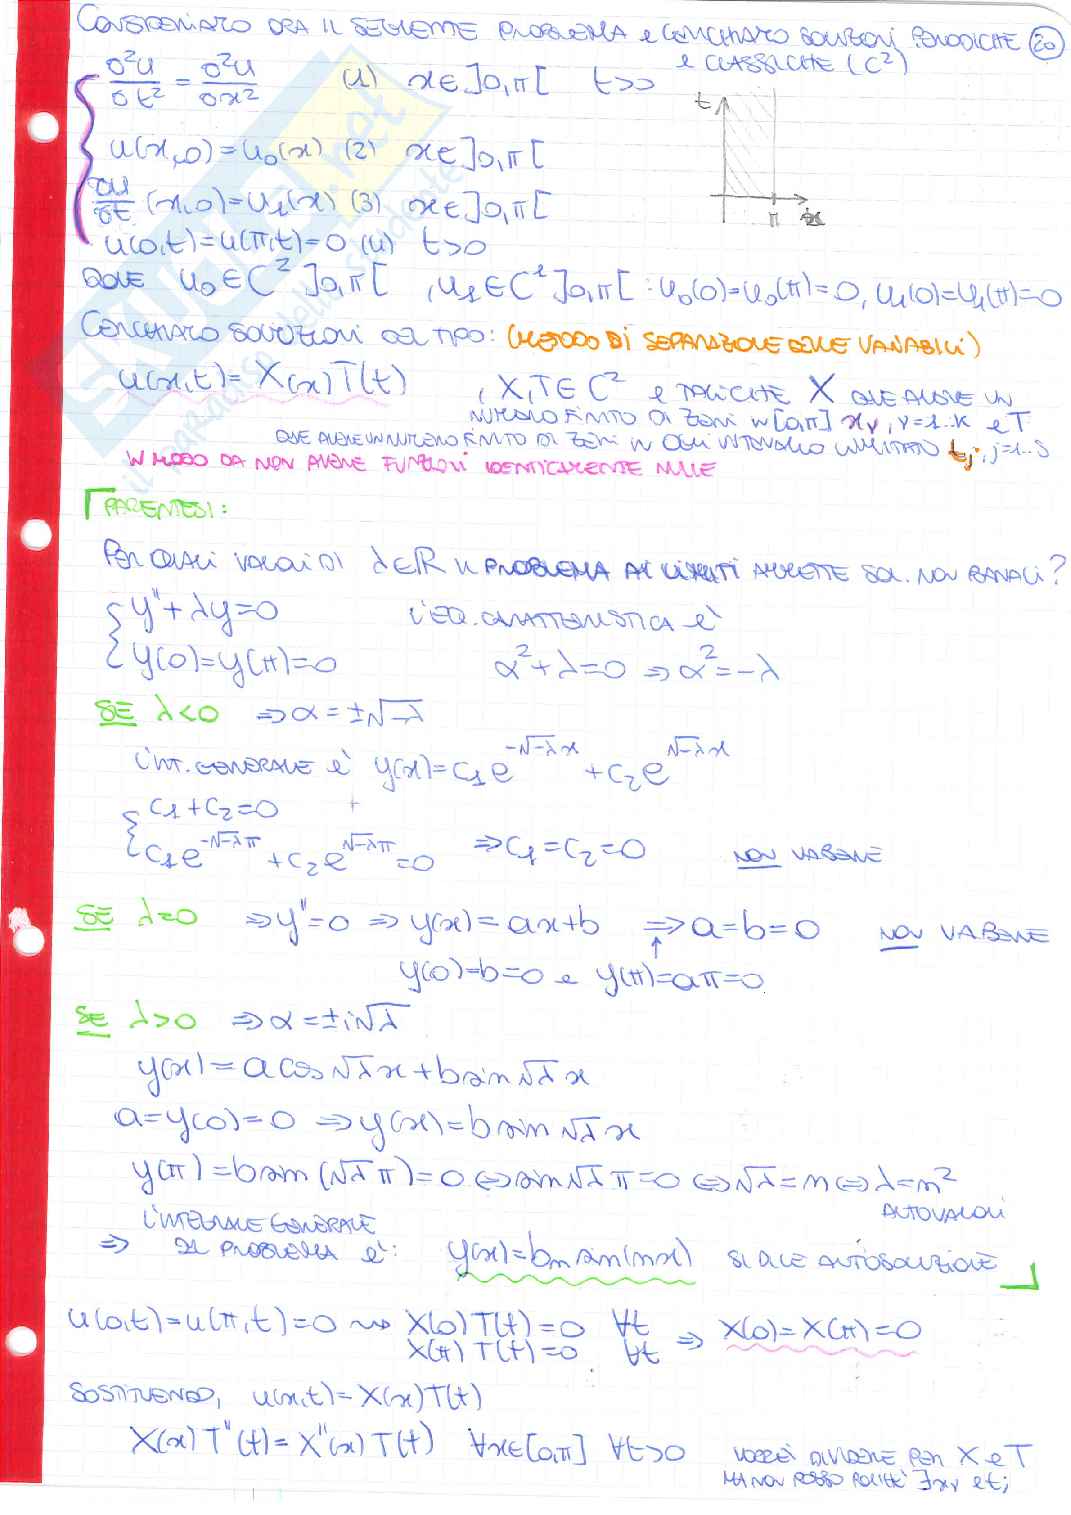 CONSIDERIAMO ORA IL SEGUENTE PROBLEMA e CERCHIAMO SOLUZIONI PERIODICHE 20
e CLASSICHE (C²)
∂²u/∂t² = ∂²u/∂x² (1) x∈]0,π[ t>0
u(x,0)=u₀(x) (2) x∈]0,π[
∂u/∂t (x,0)=u₁(x) (3) x∈]0,π[
u(0,t)=u(π,t)=0 (4) t>0
t
π
x
DOVE u₀∈C² ]0,π[ , u₁∈C¹ ]0,π[ : u₀(0)=u₀(π)=0, u₁(0)=u₁(π)=0
CERCHIAMO SOLUZIONI DEL TIPO: (METODO DI SEPARAZIONE DELLE VARIABILI)
u(x,t)= X(x)T(t) , X,T∈C² e TALI CHE X ABBIA UN
NUMERO FINITO DI ZERI IN [0,π] xᵥ, ν=1..K e T
CHE ABBIA UN NUMERO FINITO DI ZERI IN OGNI INTERVALLO LIMITATO tⱼ, j=1..S
IN MODO DA NON AVERE FUNZIONI IDENTICAMENTE NULLE
PARENTESI:
PER QUALI VALORI DI λ∈ℝ IL PROBLEMA AI LIMITI AMMETTE SOL. NON BANALI?
y''+λy=0 L'EQ. CARATTERISTICA è
y(0)=y(π)=0 α²+λ=0 ⇒ α²=-λ
SE λ<0 ⇒ α=±√-λ
L'INT. GENERALE è y(x)=c₁e^(-√-λ x) + c₂e^(√-λ x)
c₁+c₂=0
c₁e^(-√-λ π) + c₂e^(√-λ π)=0 ⇒ c₁=c₂=0 NON VA BENE
SE λ=0 ⇒ y''=0 ⇒ y(x)=ax+b ⇒ a=b=0 NON VA BENE
↑
y(0)=b=0 e y(π)=aπ=0
SE λ>0 ⇒ α=±i√λ
y(x)=a cos√λx + b sin√λx
a=y(0)=0 ⇒ y(x)=b sin√λx
y(π)=b sin(√λπ)=0 ⇔ sin√λπ=0 ⇔ √λ=n ⇔ λ=n²
AUTOVALORI
L'INTEGRALE GENERALE
⇒ DEL PROBLEMA è: y(x)=bₙ sin(nx) SI DICE AUTOSOLUZIONE
u(0,t)=u(π,t)=0 ⇝ X(0)T(t)=0 ∀t ⇒ X(0)=X(π)=0
X(π)T(t)=0 ∀t
SOSTITUENDO, u(x,t)=X(x)T(t)
X(x)T''(t)=X''(x)T(t) ∀x∈[0,π] ∀t>0 VORREI DIVIDERE PER X e T
MA NON POSSO POICHÉ ∃xᵥ e tⱼ